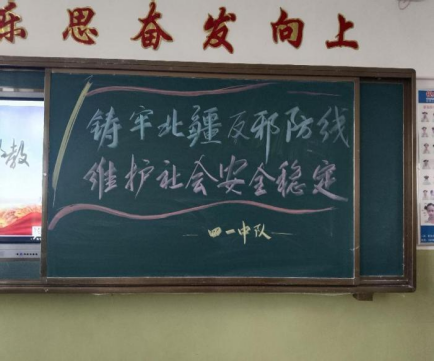 乐思奋发向上
铸牢北疆反邪防线
维护社会安全稳定
四一中队
教